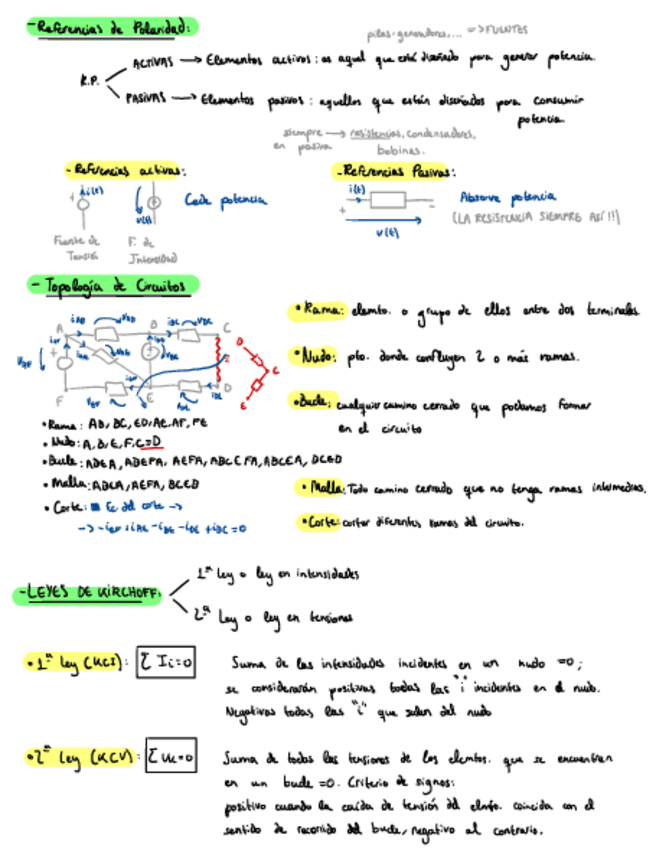 - Referencias de Polaridad:
pilas-generadores,... => FUENTES
R.P.
ACTIVAS → Elementos activos: es aquel que está diseñado para generar potencia.
PASIVAS → Elementos pasivos: aquellos que están diseñados para consumir
potencia.
siempre → resistencias, condensadores,
en pasiva bobinas.
- Referencias activas:
i(t)
+
u(t)
Cede potencia
Fuente de
Tensión
F. de
Intensidad
- Referencias Pasivas:
i(t)
+ -
u(t)
Absorve potencia
(LA RESISTENCIA SIEMPRE ASÍ!!)
- Topología de Circuitos
A B C
F E D
D
C
E
• Rama: elemto. o grupo de ellos entre dos terminales.
• Nudo: pto. donde confluyen 2 o más ramas.
• Bucle: cualquier camino cerrado que podamos formar
en el circuito
• Rama: AB, BC, ED, AE, AF, FE
• Nudo: A, B, E, F, C=D
• Bucle: ABEA, ABEFA, AEFA, ABCEA, BCED
• Malla: ABEA, AEFA, BCED
• Corte: Ec del corte →
• Malla: Todo camino cerrado que no tenga ramas intermedias.
• Corte: cortar diferentes ramas del circuito.
- LEYES DE KIRCHOFF:
1ª ley o ley en intensidades
2ª ley o ley en tensiones
• 1ª ley (KCI): Σ Ii=0
Suma de las intensidades incidentes en un nudo =0;
se considerarán positivas todas las "i" incidentes en el nudo.
Negativas todas las "i" que salen del nudo
• 2ª ley (KCV): Σ Uk=0
Suma de todas las tensiones de los elemtos. que se encuentren
en un bucle =0. Criterio de signos:
positivo cuando la caída de tensión del elmto. coincida con el
sentido de recorrido del bucle, negativo al contrario.